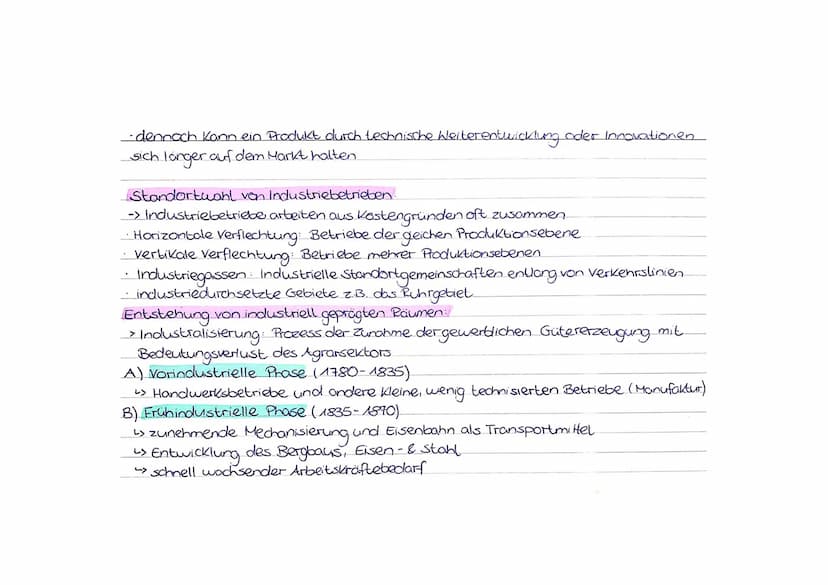 · dennoch kann ein Produkt durch technische Weiterentwicklung oder Innovationen
sich länger auf dem Markt halten
Standortwahl von Industriebetrieben
-> Industriebetriebe arbeiten aus Kostengründen oft zusammen
· Horizontale Verflechtung: Betriebe der geichen Produktionsebene
· vertikale Verflechtung: Betriebe mehrer Produktionsebenen
· Industriegassen: Industrielle Standortgemeinschaften entlang von Verkehrslinien
· industriedurchsetzte Gebiete z.B. das Ruhrgebiet
Entstehung von industriell geprägten Räumen:
> Industralisierung: Prozess der Zunahme der gewerblichen Gütererzeugung mit
Bedeutungsverlust des Agrarsektors
A) Vorindustrielle Phase (1780-1835)
↳ Handwerksbetriebe und andere kleine, wenig technisierten Betriebe (Manufaktur)
B) Frühindustrielle Phase (1835-1870)
↳ zunehmende Mechanisierung und Eisenbahn als Transportmittel
↳ Entwicklung des Bergbaus, Eisen- & Stahl
↳ schnell wachsender Arbeitskräftebedarf